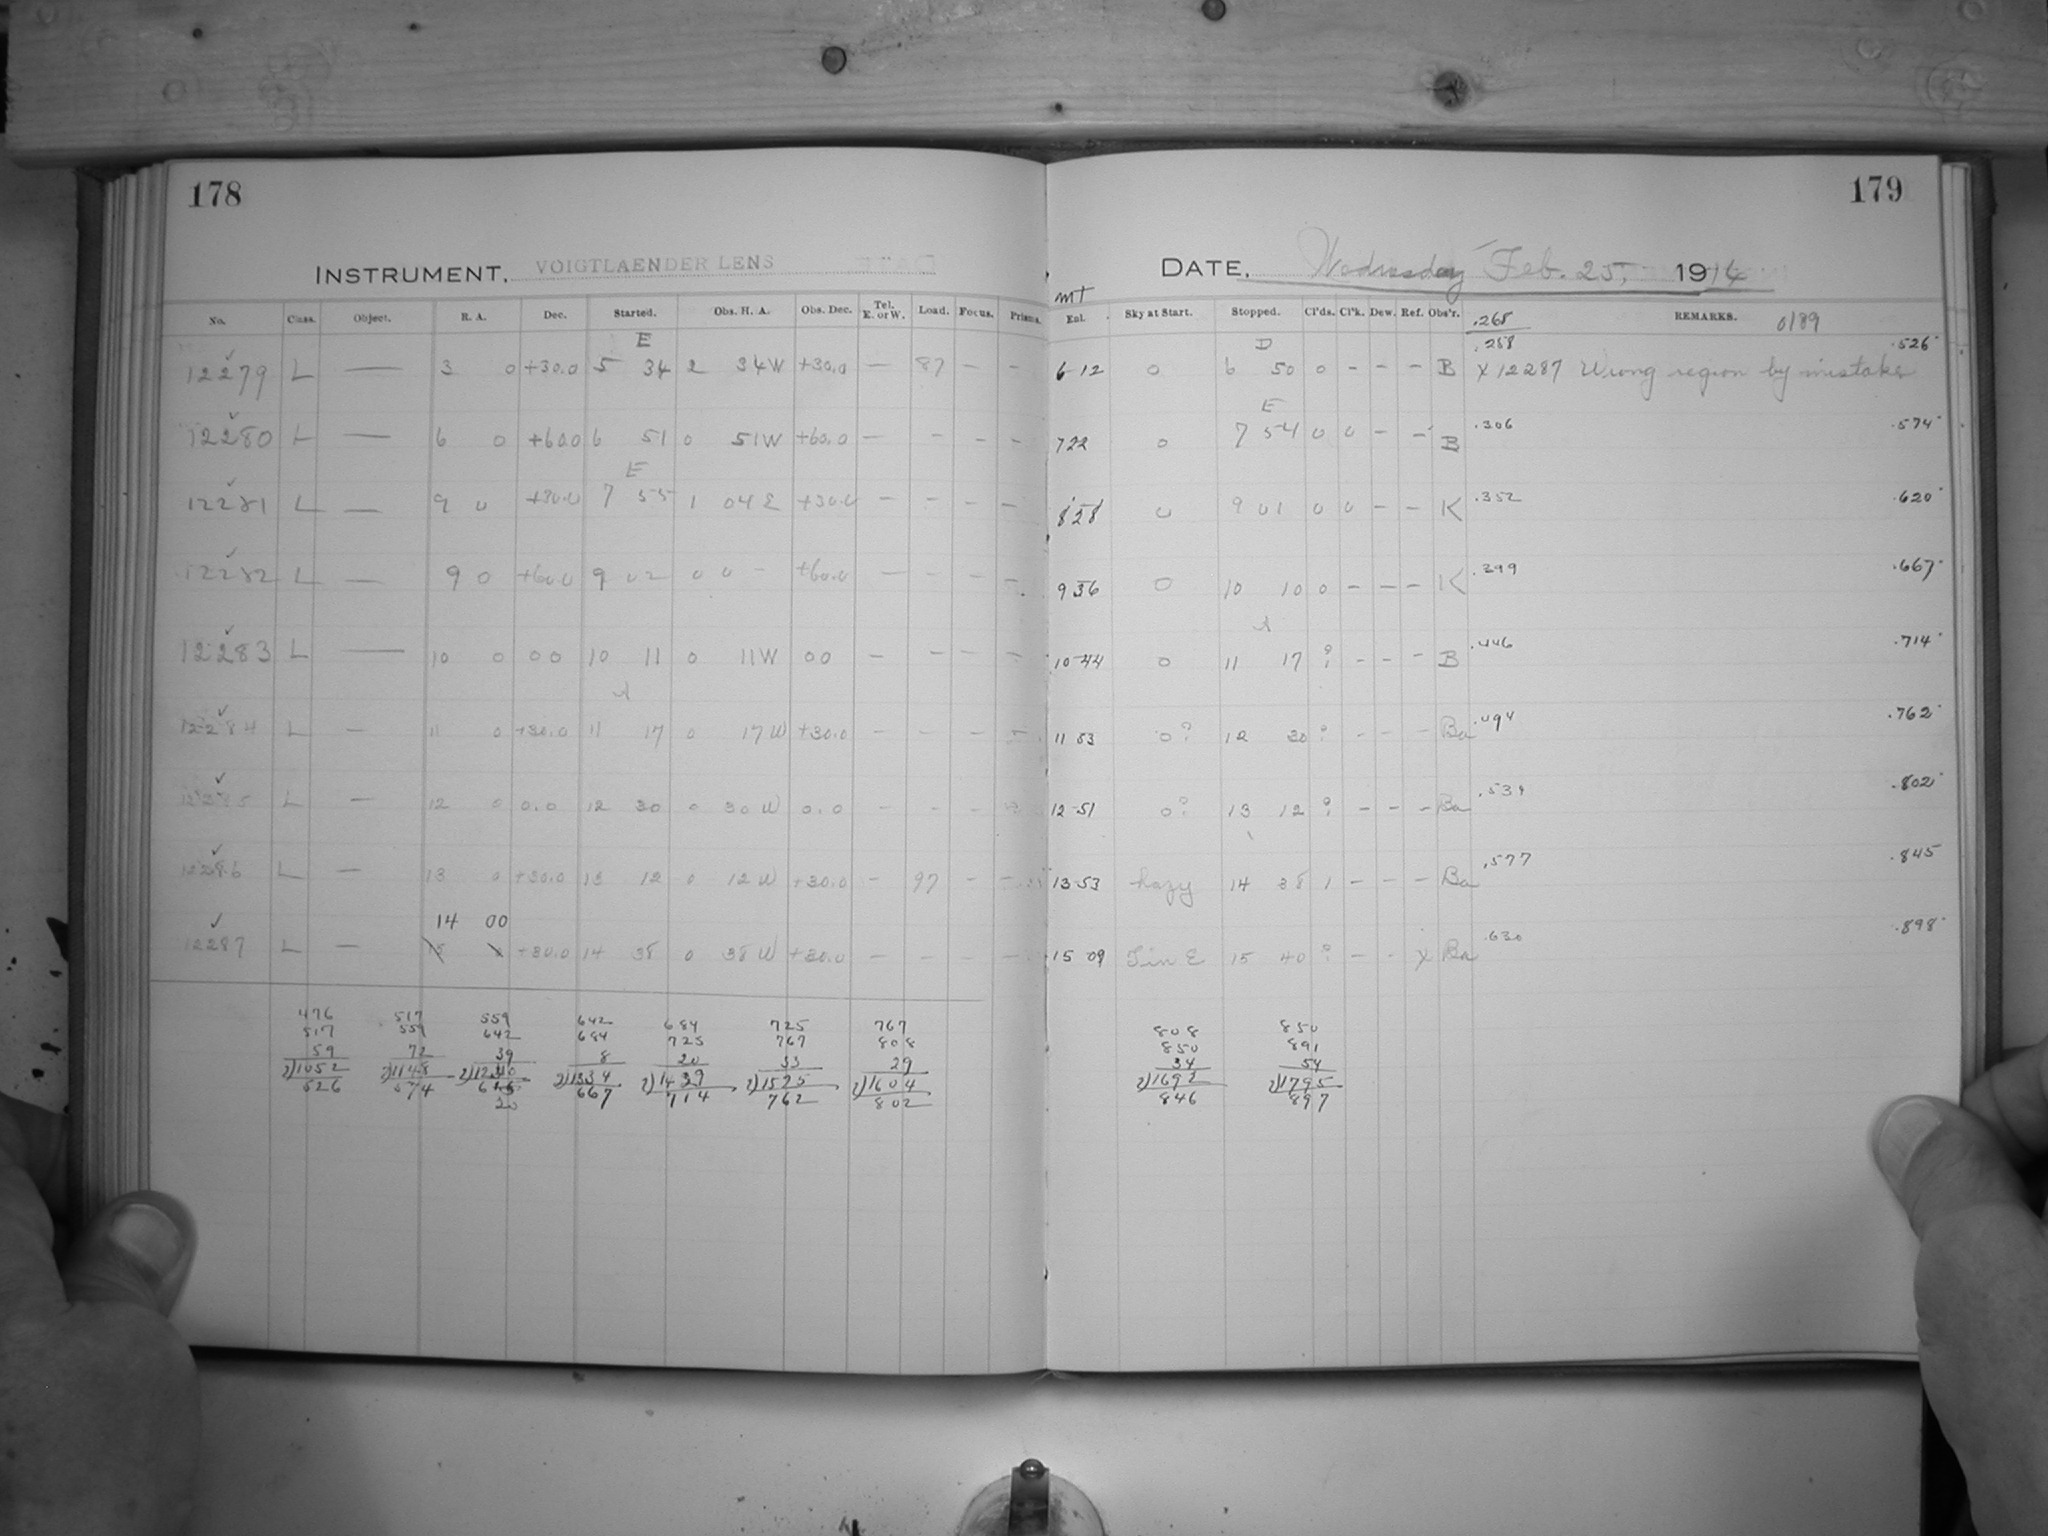 178
179
INSTRUMENT, VOIGTLAENDER LENS
DATE, Wednesday Feb. 25, 1914
No. Class. Object. R. A. Dec. Started. Obs. H. A. Obs. Dec. Tel. E. or W. Load. Focus. Prisms. mt Exl. Sky at Start. Stopped. Cl'ds. Cl'k. Dew. Ref. Obs'r. .265 REMARKS. 0189
E D .258 .526
12279 L — 3 0 +30.0 5 34 2 34W +30.0 — 87 — — 6 12 0 6 50 0 — — — B X 12287 Wrong region by mistake
E
12280 L — 6 0 +60.0 6 51 0 51W +60.0 — — — — 7 22 0 7 54 0 0 — — B .306 .574
E
12281 L — 9 0 +30.0 7 55 1 04 E +30.0 — — — — 8 28 0 9 01 0 0 — — K .352 .620
12282 L — 9 0 +60.0 9 02 0 0 — +60.0 — — — — 9 36 0 10 10 0 — — — K .399 .667
12283 L — 10 0 0 0 10 11 0 11W 0 0 — — — — 10 44 0 11 17 ? — — — B .446 .714
12284 L — 11 0 +30.0 11 17 0 17 W +30.0 — — — — 11 53 0? 12 30 ? — — — Ba .494 .762
12285 L — 12 0 0.0 12 30 0 30 W 0.0 — — — 12 51 0? 13 12 ? — — — Ba .534 .802
12286 L — 13 0 +30.0 13 12 0 12 W +30.0 — 97 — — 13 53 hazy 14 38 1 — — — Ba .577 .845
14 00
12287 L — +30.0 14 38 0 38 W +30.0 — — — — 15 09 15 40 ? — - X Ba .630 .898
476 517 559 642 684 725 767 808 850
517 559 642 684 725 767 808 850 891
59 72 39 8 20 33 29 34 54
2)1052 2)1148 2)1240 2)1334 2)1429 2)1525 2)1604 2)1692 2)1795
526 574 620 667 714 762 802 846 897